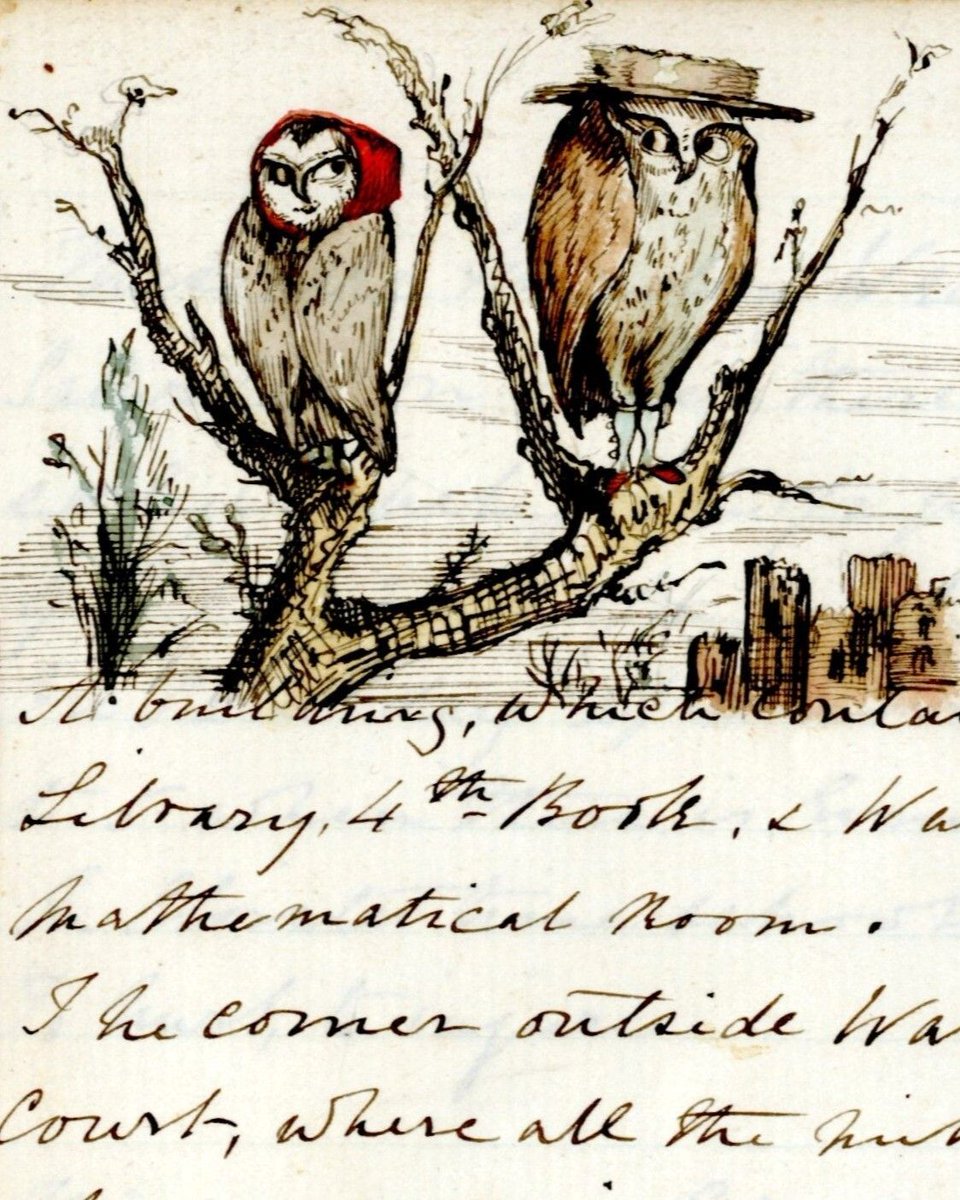 A building, which contai
Library, 4th Book, & Wa
Mathematical Room.
The corner outside Wa
Court, where all the